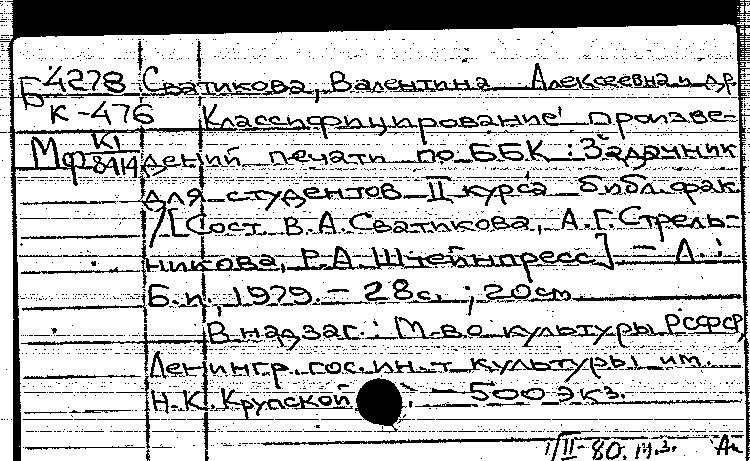 Б 4278 Сватикова, Валентина Алексеевна и др.
К-476 Классифицирование произве-
Мф К1/8414 дений печати по ББК: Задачник
для студентов II курса библ. фак
/ [Сост. В.А.Сватикова, А.Г.Стрель-
никова, Р.А.Штейнпресс] – Л.:
Б.и., 1979. – 28с. ; 20см.
В надзаг.: М-во культуры РСФСР,
Ленингр. гос. ин-т культуры им.
Н.К.Крупской. – 500 экз.
II-80.